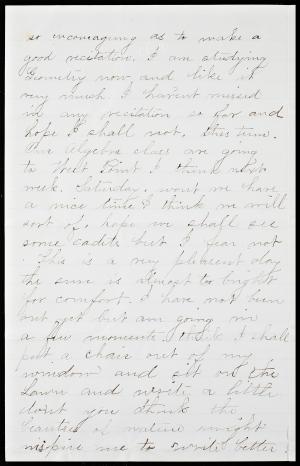 so encouraging as to make a
good recitation. I am studying
Geometry now, and like it
very much. I havent missed
in any recitation so far and
hope I shall not, this term.
Our Algebra class are going
to West Point I think next
week. Saturday, wont we have
a nice time I think we will
sort of, hope we shall see
some cadets but I fear not
. This is a very pleasent day
the sun is almost to bright
for comfort. I have not been
out yet but am going in
a few moments. think I shall
put a chair out of my
window and sit on the
Lawn and write a little
dont you think the
beauties of nature might
inspire me to write better.